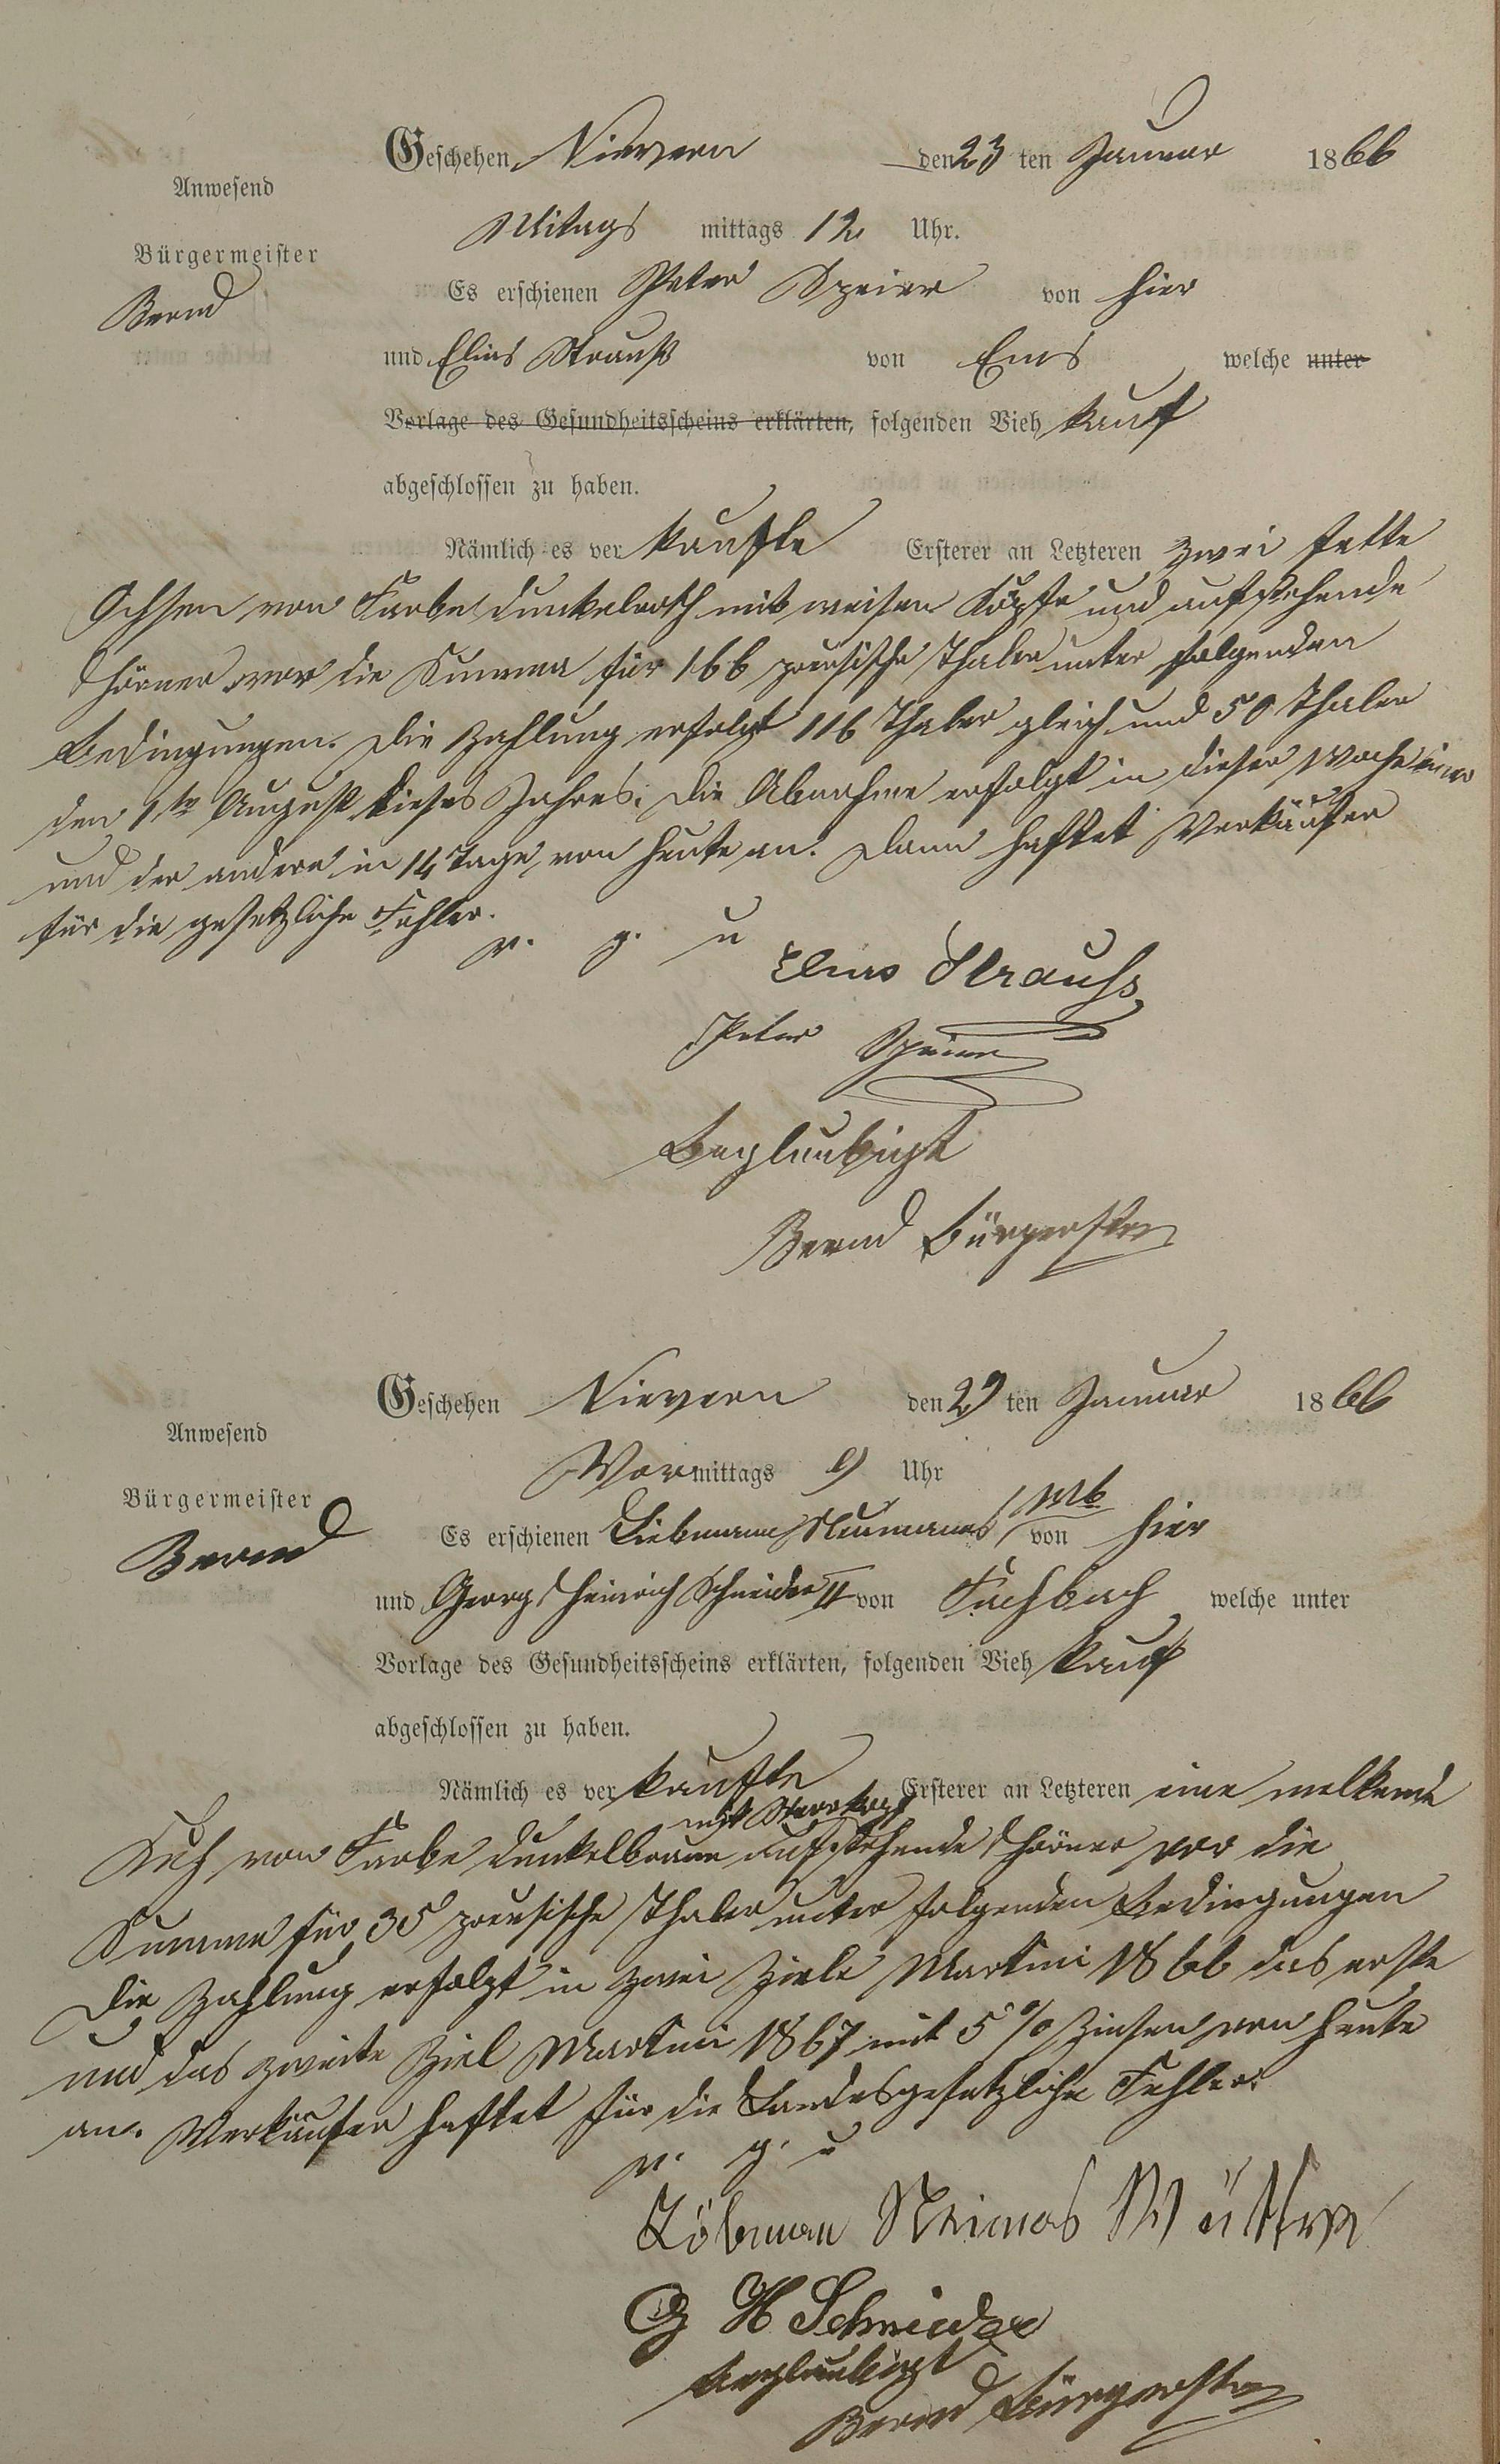 Geschehen Nievern den 23 ten Januar 1866
Anwesend
Mitags mittags 12 Uhr.
Bürgermeister
Bernd
Es erschienen Peter Speier von hier
und Elias Strauß von Ems welche unter
Vorlage des Gesundheitsscheins erklärten, folgenden Vieh kauf
abgeschlossen zu haben.
Nämlich es ver kaufte Ersterer an Letzteren zwei fette
Ochsen von Farbe dunkelroth mit weisen Köpfe und aufstehende
Hörner vor die Summa für 166 preusische Thaler unter folgenden
Bedingungen. Die Zahlung erfolgt 116 Thaler gleich und 50 Thaler
den 1ten August dieses Jahres. Die Abnahme erfolgt in dieser Woche einer
und der andere in 14 Tage, von heute an. Dann haftet Verkäufer
für die gesetzliche Fehler.
v. g. u
Elias Strauss
Peter Speier
Beglaubigt
Bernd Bürgerstr
Geschehen Nievern den 29 ten Januar 1866
Anwesend
Vormittags 9 Uhr
Bürgermeister
Bernd
Es erschienen Liebmann Neumanns Wb von hier
und Georg Heinrich Schneider II von Fachbach welche unter
Vorlage des Gesundheitsscheins erklärten, folgenden Vieh kauf
abgeschlossen zu haben.
Nämlich es ver kaufte Ersterer an Letzteren eine melkende
mit Sternkopf
Kuh von Farbe dunkelbraun aufstehende Hörner vor die
Summe für 35 preusische Thaler unter folgenden Bedingungen
Die Zahlung erfolgt in zwei Ziele Martini 1866 das erste
und das zweite Ziel Martini 1867 mit 5 % Zinsen von heute
an. Verkäufer haftet für die Landesgesetzliche Fehler.
v. g. u
Löbman Neimas Wüttwe
G H Schneider
Beglaubigt
Bernd Bürgerstr